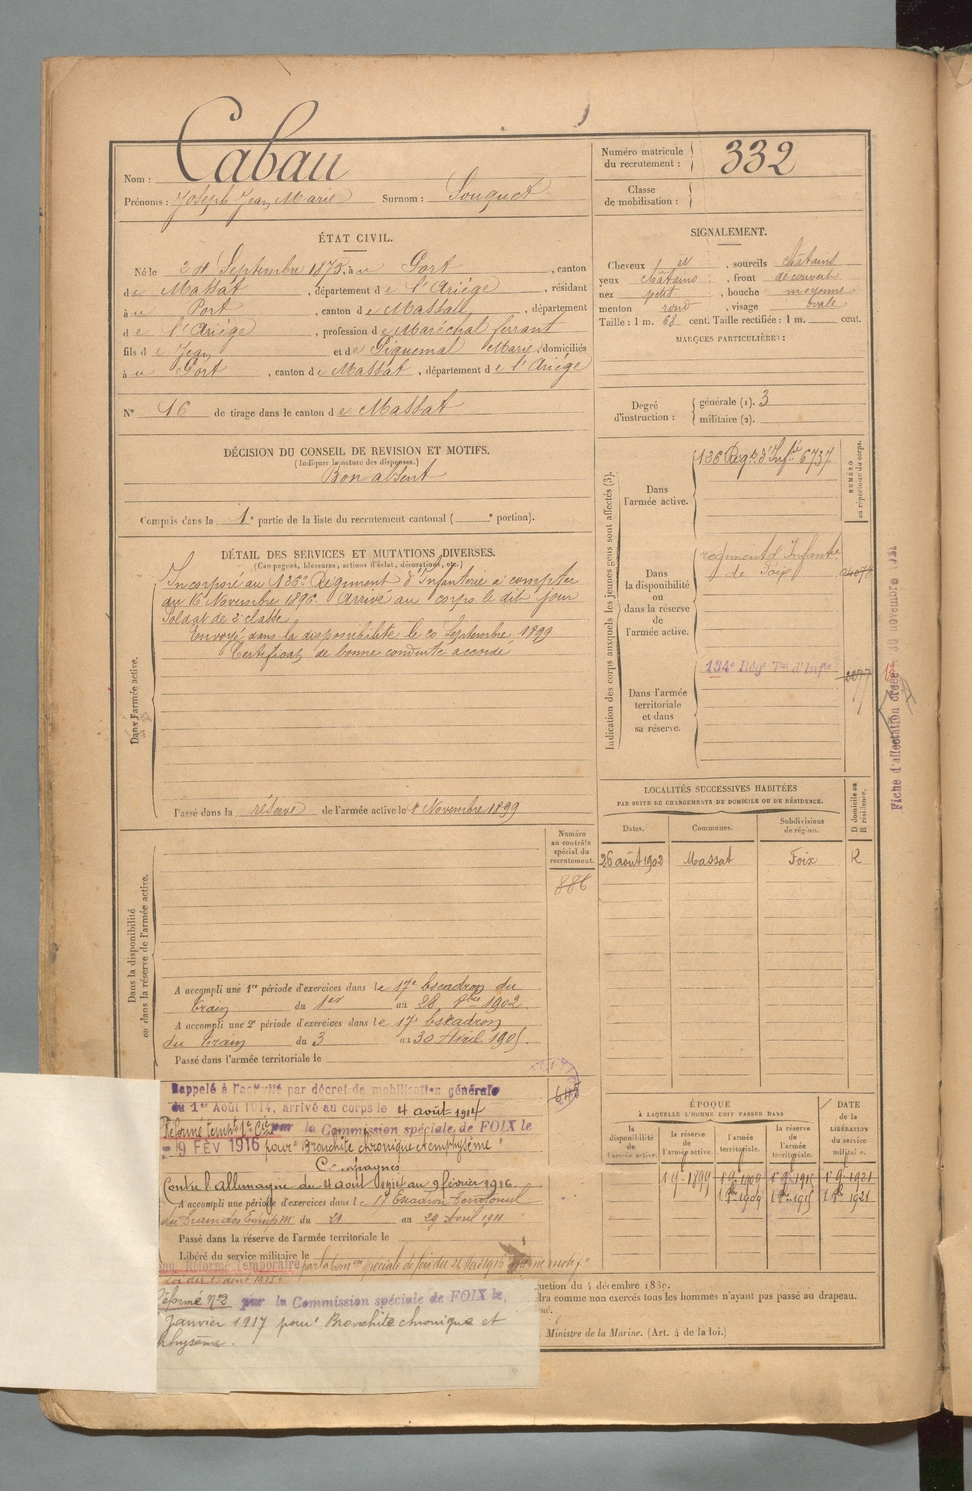 Nom : Cabau
Prénoms : Joseph Jean Marie Surnom : Souquet
Numéro matricule du recrutement : 332
Classe de mobilisation :
ÉTAT CIVIL.
Né le Septembre 1875, à u Port , canton
de Massat , département de l'Ariège , résidant
à u Port , canton de Massat , département
de l'Ariège , profession de Maréchal ferrant
fils de Jean et de Piquemal Marie , domiciliés
à u Port , canton de Massat , département de l'Ariège
N° 16 de tirage dans le canton de Massat
SIGNALEMENT.
Cheveux , sourcils châtains
yeux châtains , front découvert
nez petit , bouche moyenne
menton rond , visage ovale
Taille : 1 m. 68 cent. Taille rectifiée : 1 m. cent.
MARQUES PARTICULIÈRES :
Degré d'instruction : générale (1). 3
militaire (2).
DÉCISION DU CONSEIL DE REVISION ET MOTIFS.
(Indiquer la nature des dispenses.)
Bon absent
Compris dans la 1e partie de la liste du recrutement cantonal ( e portion).
DÉTAIL DES SERVICES ET MUTATIONS DIVERSES.
(Campagnes, blessures, actions d'éclat, décorations, etc.)
Dans l'armée active.
Incorporé au 136e Régiment d'Infanterie à compter
du 16 Novembre 1896. Arrivé au corps le dit jour
Soldat de 2e classe
Envoyé dans la disponibilité le 20 Septembre 1899
Certificat de bonne conduite accordé
Passé dans la réserve de l'armée active le 1 Novembre 1899
Indication des corps auxquels les jeunes gens sont affectés (3).
NUMÉRO au répertoire du corps.
Dans l'armée active.
136 Reg. d'Inf.ie 6737
Dans la disponibilité ou dans la réserve de l'armée active.
régiment d'Infant.ie
de Foix
Dans l'armée territoriale et dans sa réserve.
134e Rég. T.al d'Inf.ie
Fiche d'affectation 30 novembre
LOCALITÉS SUCCESSIVES HABITÉES
PAR SUITE DE CHANGEMENTS DE DOMICILE OU DE RÉSIDENCE.
Dates. Communes. Subdivisions de région. D domicile ou R résidence.
26 août 1902 Massat Foix R
Dans la disponibilité
ou dans la réserve de l'armée active.
Numéro au contrôle spécial du recrutement.
886
A accompli une 1re période d'exercices dans le 17e Escadron du
Train du 1er au 28 1902
A accompli une 2e période d'exercices dans le 17e Escadron
du Train du 3 au 30 Avril 1905.
Passé dans l'armée territoriale le
Rappelé à l'activité par décret de mobilisation générale
du 1er Août 1914, arrivé au corps le 4 août 1914
Réformé temp. par la Commission spéciale, de FOIX le
- 9 FEV 1916 pour "Bronchite chronique et emphysème"
Campagnes
Contre l'Allemagne du 4 août 1914 au 9 février 1916.
A accompli une période d'exercices dans le 17 Escadron Territorial
du Train des Equip. du 21 au 29 Avril 1911
Passé dans la réserve de l'armée territoriale le
Libéré du service militaire le
Réforme Temporaire par la Com.on spéciale de Foix du 1916
Loi du août 1915
Réformé N°2 par la Commission spéciale de FOIX le,
Janvier 1917 pour Bronchite chronique et
ÉPOQUE
À LAQUELLE L'HOMME DOIT PASSER DANS
la disponibilité de l'armée active. la réserve de l'armée active. l'armée territoriale. la réserve de l'armée territoriale.
DATE de la LIBÉRATION du service militaire.
uction du 4 décembre 1889.
dra comme non exercés tous les hommes n'ayant pas passé au drapeau.
Ministre de la Marine. (Art. 4 de la loi.)